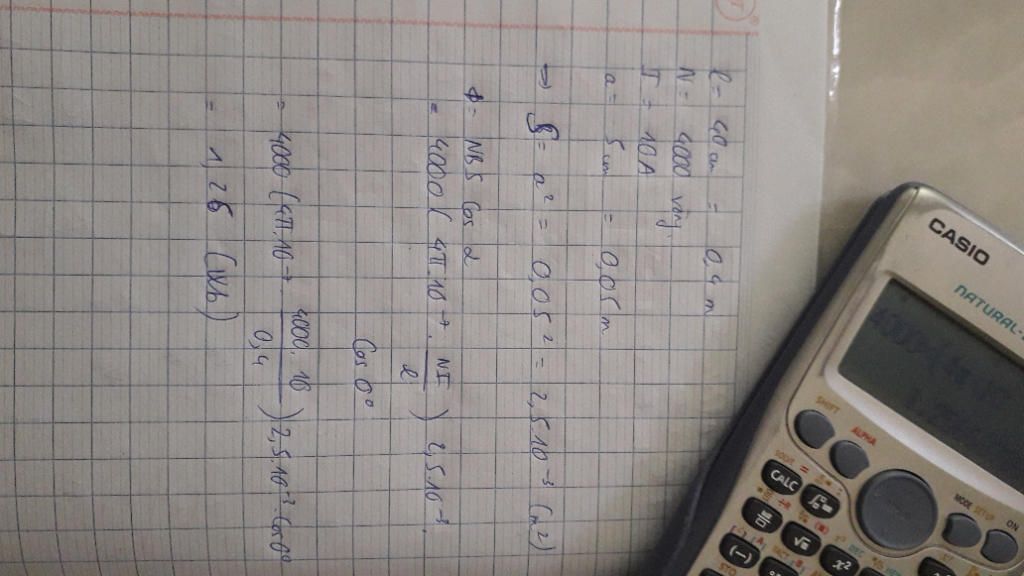 l = 40 cm = 0,4 m
N = 4000 vòng.
I = 10A
a = 5 cm = 0,05 m
→ S = a² = 0,05² = 2,5 10⁻³ (m²)
Φ = NBS cos α
= 4000 ( 4π.10⁻⁷. NI/l ) 2,5.10⁻³.
Cos 0°
= 4000 (4π.10⁻⁷ 4000.10/0,4 ) 2,5.10⁻³.Cos0°
= 1,26 (Wb)
CASIO
NATURAL-
SHIFT
ALPHA
MODE SETUP
ON
SOLVE =
CALC
x²
(−)
STO